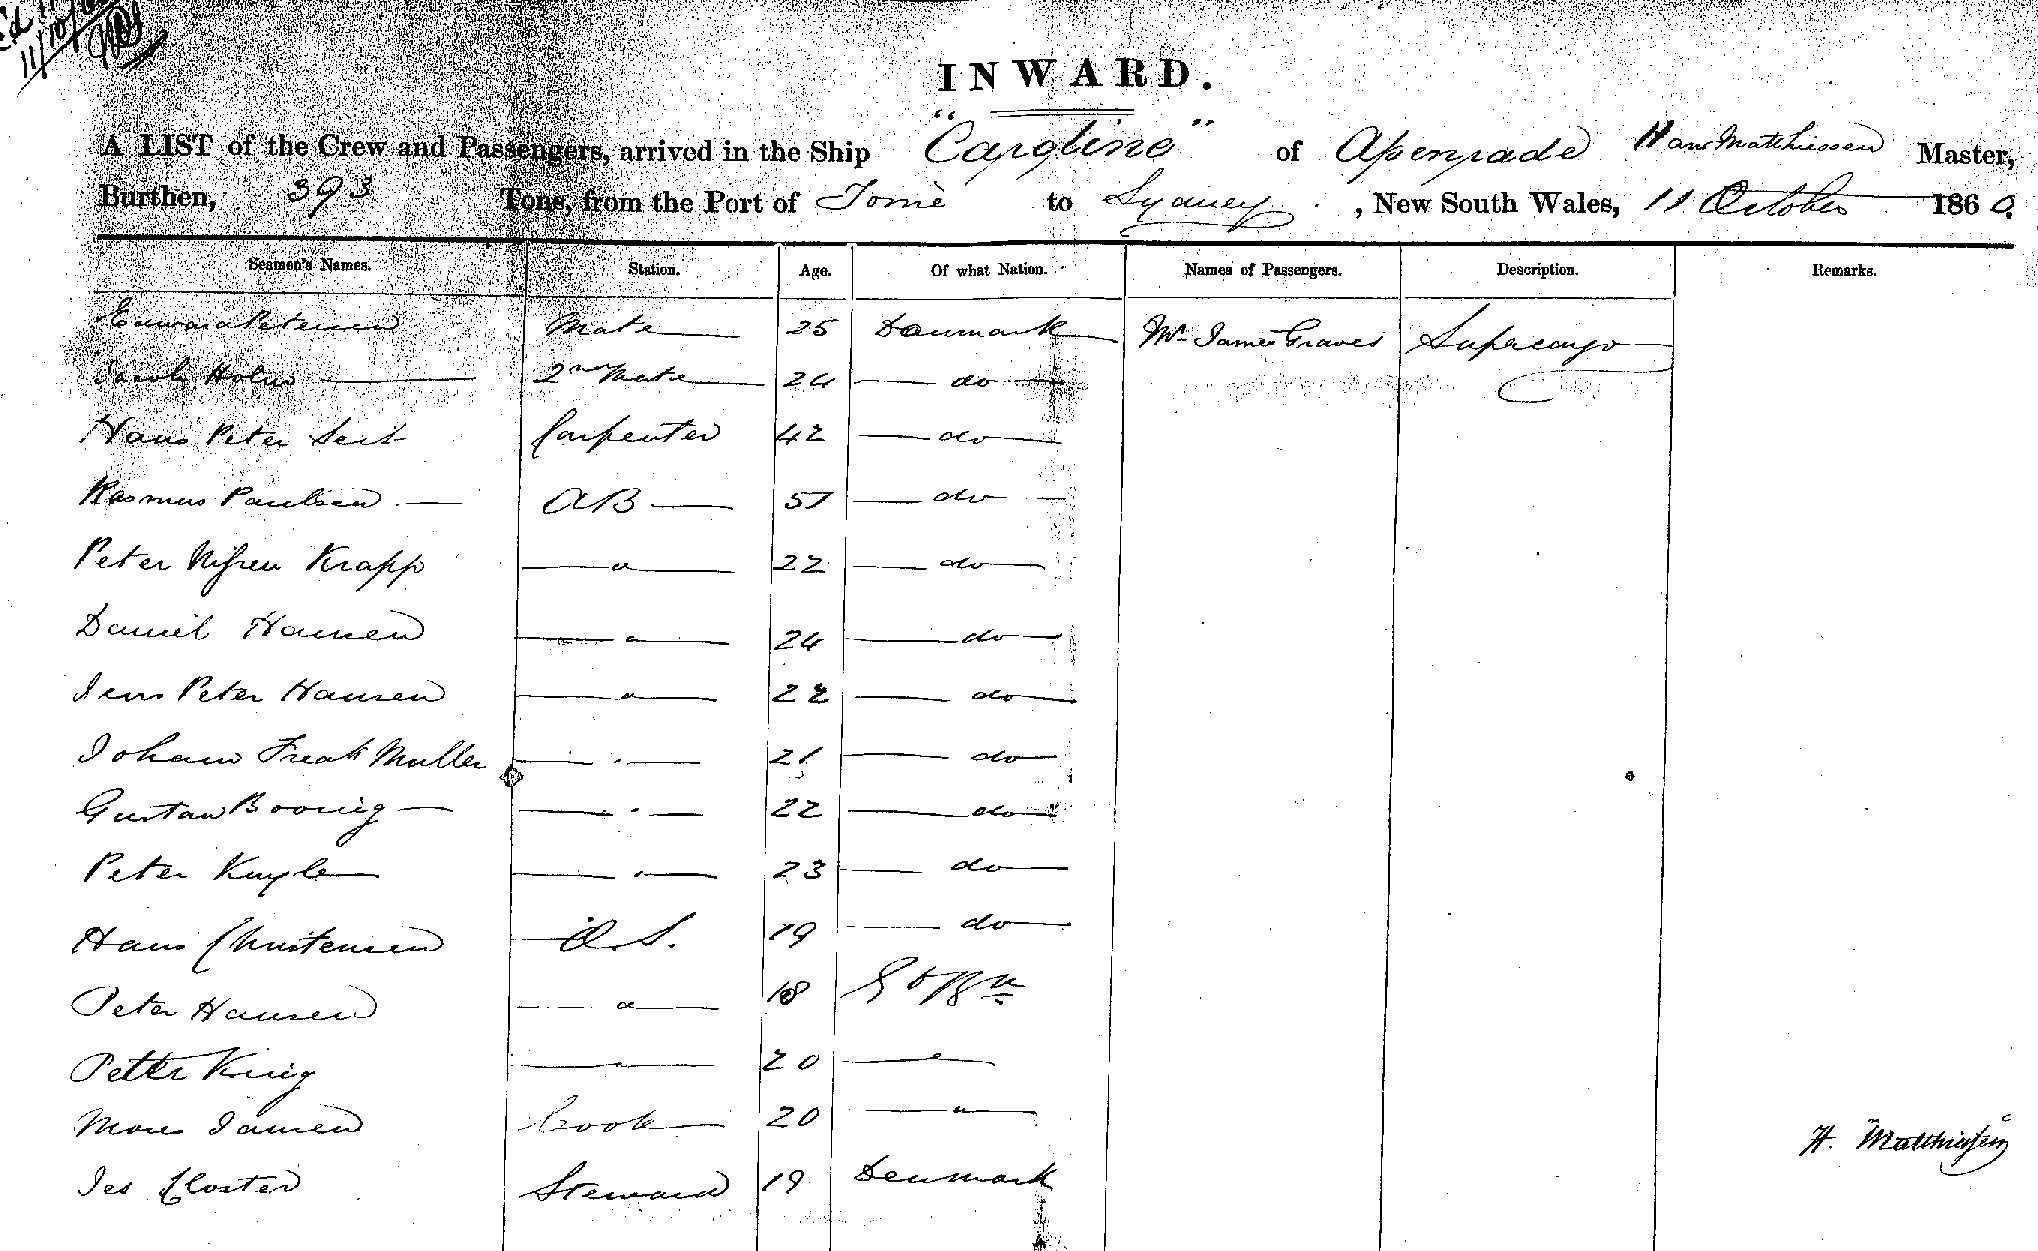 11/10/60
INWARD.
A LIST of the Crew and Passengers, arrived in the Ship "Caroline" of Apenrade Hans Matthiessen Master,
Burthen, 393 Tons, from the Port of Tomé to Sydney, New South Wales, 11 October 1860.
Seamen's Names. Station. Age. Of what Nation. Names of Passengers. Description. Remarks.
Edward Petersen Mate 25 Denmark Mr James Graves Supacargo
Jacob Holm 2nd Mate 24 do
Hans Peter Carpenter 42 do
Rasmus Paulsen AB 51 do
Peter Krapp " 22 do
Daniel Hansen " 24 do
Jens Peter Hansen " 22 do
Johann Fredk Muller " 21 do
Gustav " 22 do
Peter " 23 do
Hans Christensen O.S. 19 do
Peter Hansen " 18 Gt Bn
Petter King " 20 "
Jansen Cook 20 "
Jes Closter Steward 19 Denmark
H. Matthiessen